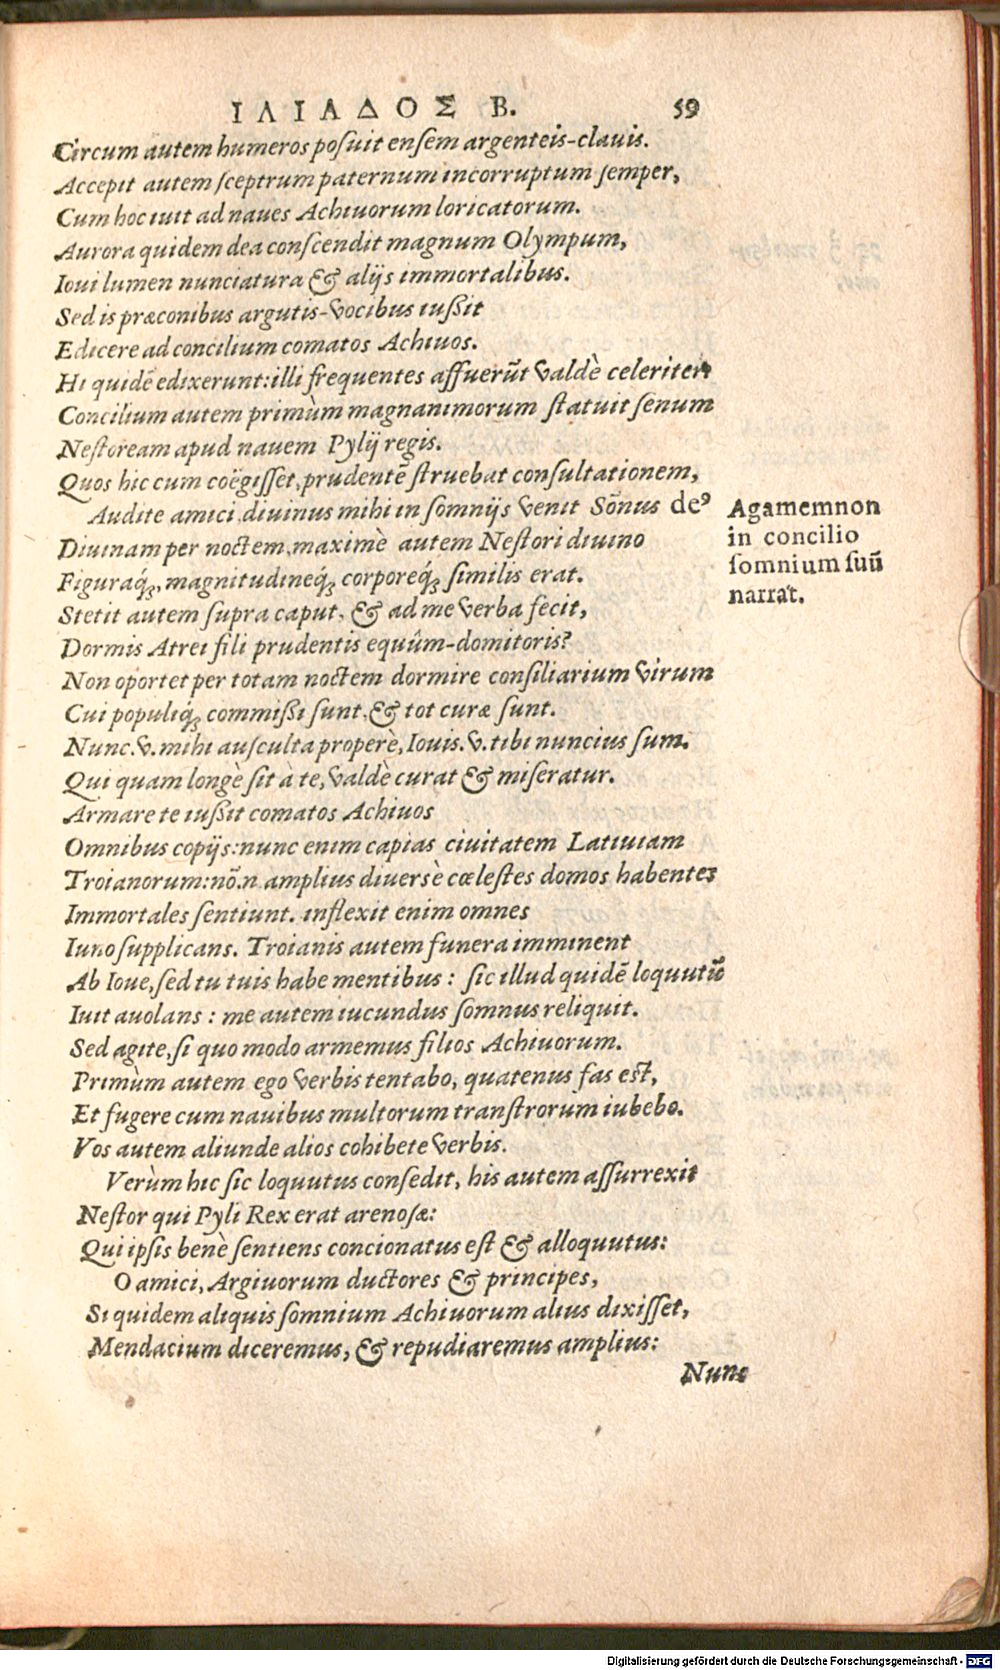 ΙΛΙΑΔΟΣ Β. 59
Circum autem humeros posuit ensem argenteis-clavis.
Accepit autem sceptrum paternum incorruptum semper,
Cum hoc ivit ad naves Achivorum loricatorum.
Aurora quidem dea conscendit magnum Olympum,
Iovi lumen nunciatura & alijs immortalibus.
Sed is præconibus argutis-vocibus iußit
Edicere ad concilium comatos Achivos.
Hi quidē edixerunt: illi frequentes assuerūt valdè celeriter
Concilium autem primùm magnanimorum statuit senum
Nestoream apud navem Pylij regis.
Quos hic cum coëgisset, prudentē struebat consultationem,
Audite amici, divinus mihi in somnijs venit Sōnus deꝰ
Divinam per noctem, maximè autem Nestori divino
Figuraq́ꝫ, magnitudineq́ꝫ corporeq́ꝫ similis erat.
Stetit autem supra caput, & ad me verba fecit,
Dormis Atrei fili prudentis equûm-domitoris?
Non oportet per totam noctem dormire consiliarium virum
Cui populiq́ꝫ commißi sunt, & tot curæ sunt.
Nunc.v. mihi ausculta properè, Iovis.v. tibi nuncius sum.
Qui quam longè sit à te, valdè curat & miseratur.
Armare te iußit comatos Achivos
Omnibus copijs: nunc enim capias civitatem Lativiam
Troianorum: nō.n. amplius diversè cœlestes domos habentes
Immortales sentiunt. inflexit enim omnes
Iuno supplicans. Troianis autem funera imminent
Ab Iove, sed tu tuis habe mentibus: sic illud quidē loquutū
Ivit avolans: me autem iucundus somnus reliquit.
Sed agite, si quo modo armemus filios Achivorum.
Primùm autem ego verbis tentabo, quatenus fas est,
Et fugere cum navibus multorum transtrorum iubebo.
Vos autem aliunde alios cohibete verbis.
Verùm hic sic loquutus consedit, his autem assurrexit
Nestor qui Pyli Rex erat arenosæ:
Qui ipsis benè sentiens concionatus est & alloquutus:
O amici, Argivorum ductores & principes,
Si quidem aliquis somnium Achivorum alius dixisset,
Mendacium diceremus, & repudiaremus amplius:
Nunc
Agamemnon
in concilio
somnium suū
narrat.
Digitalisierung gefördert durch die Deutsche Forschungsgemeinschaft - DFG